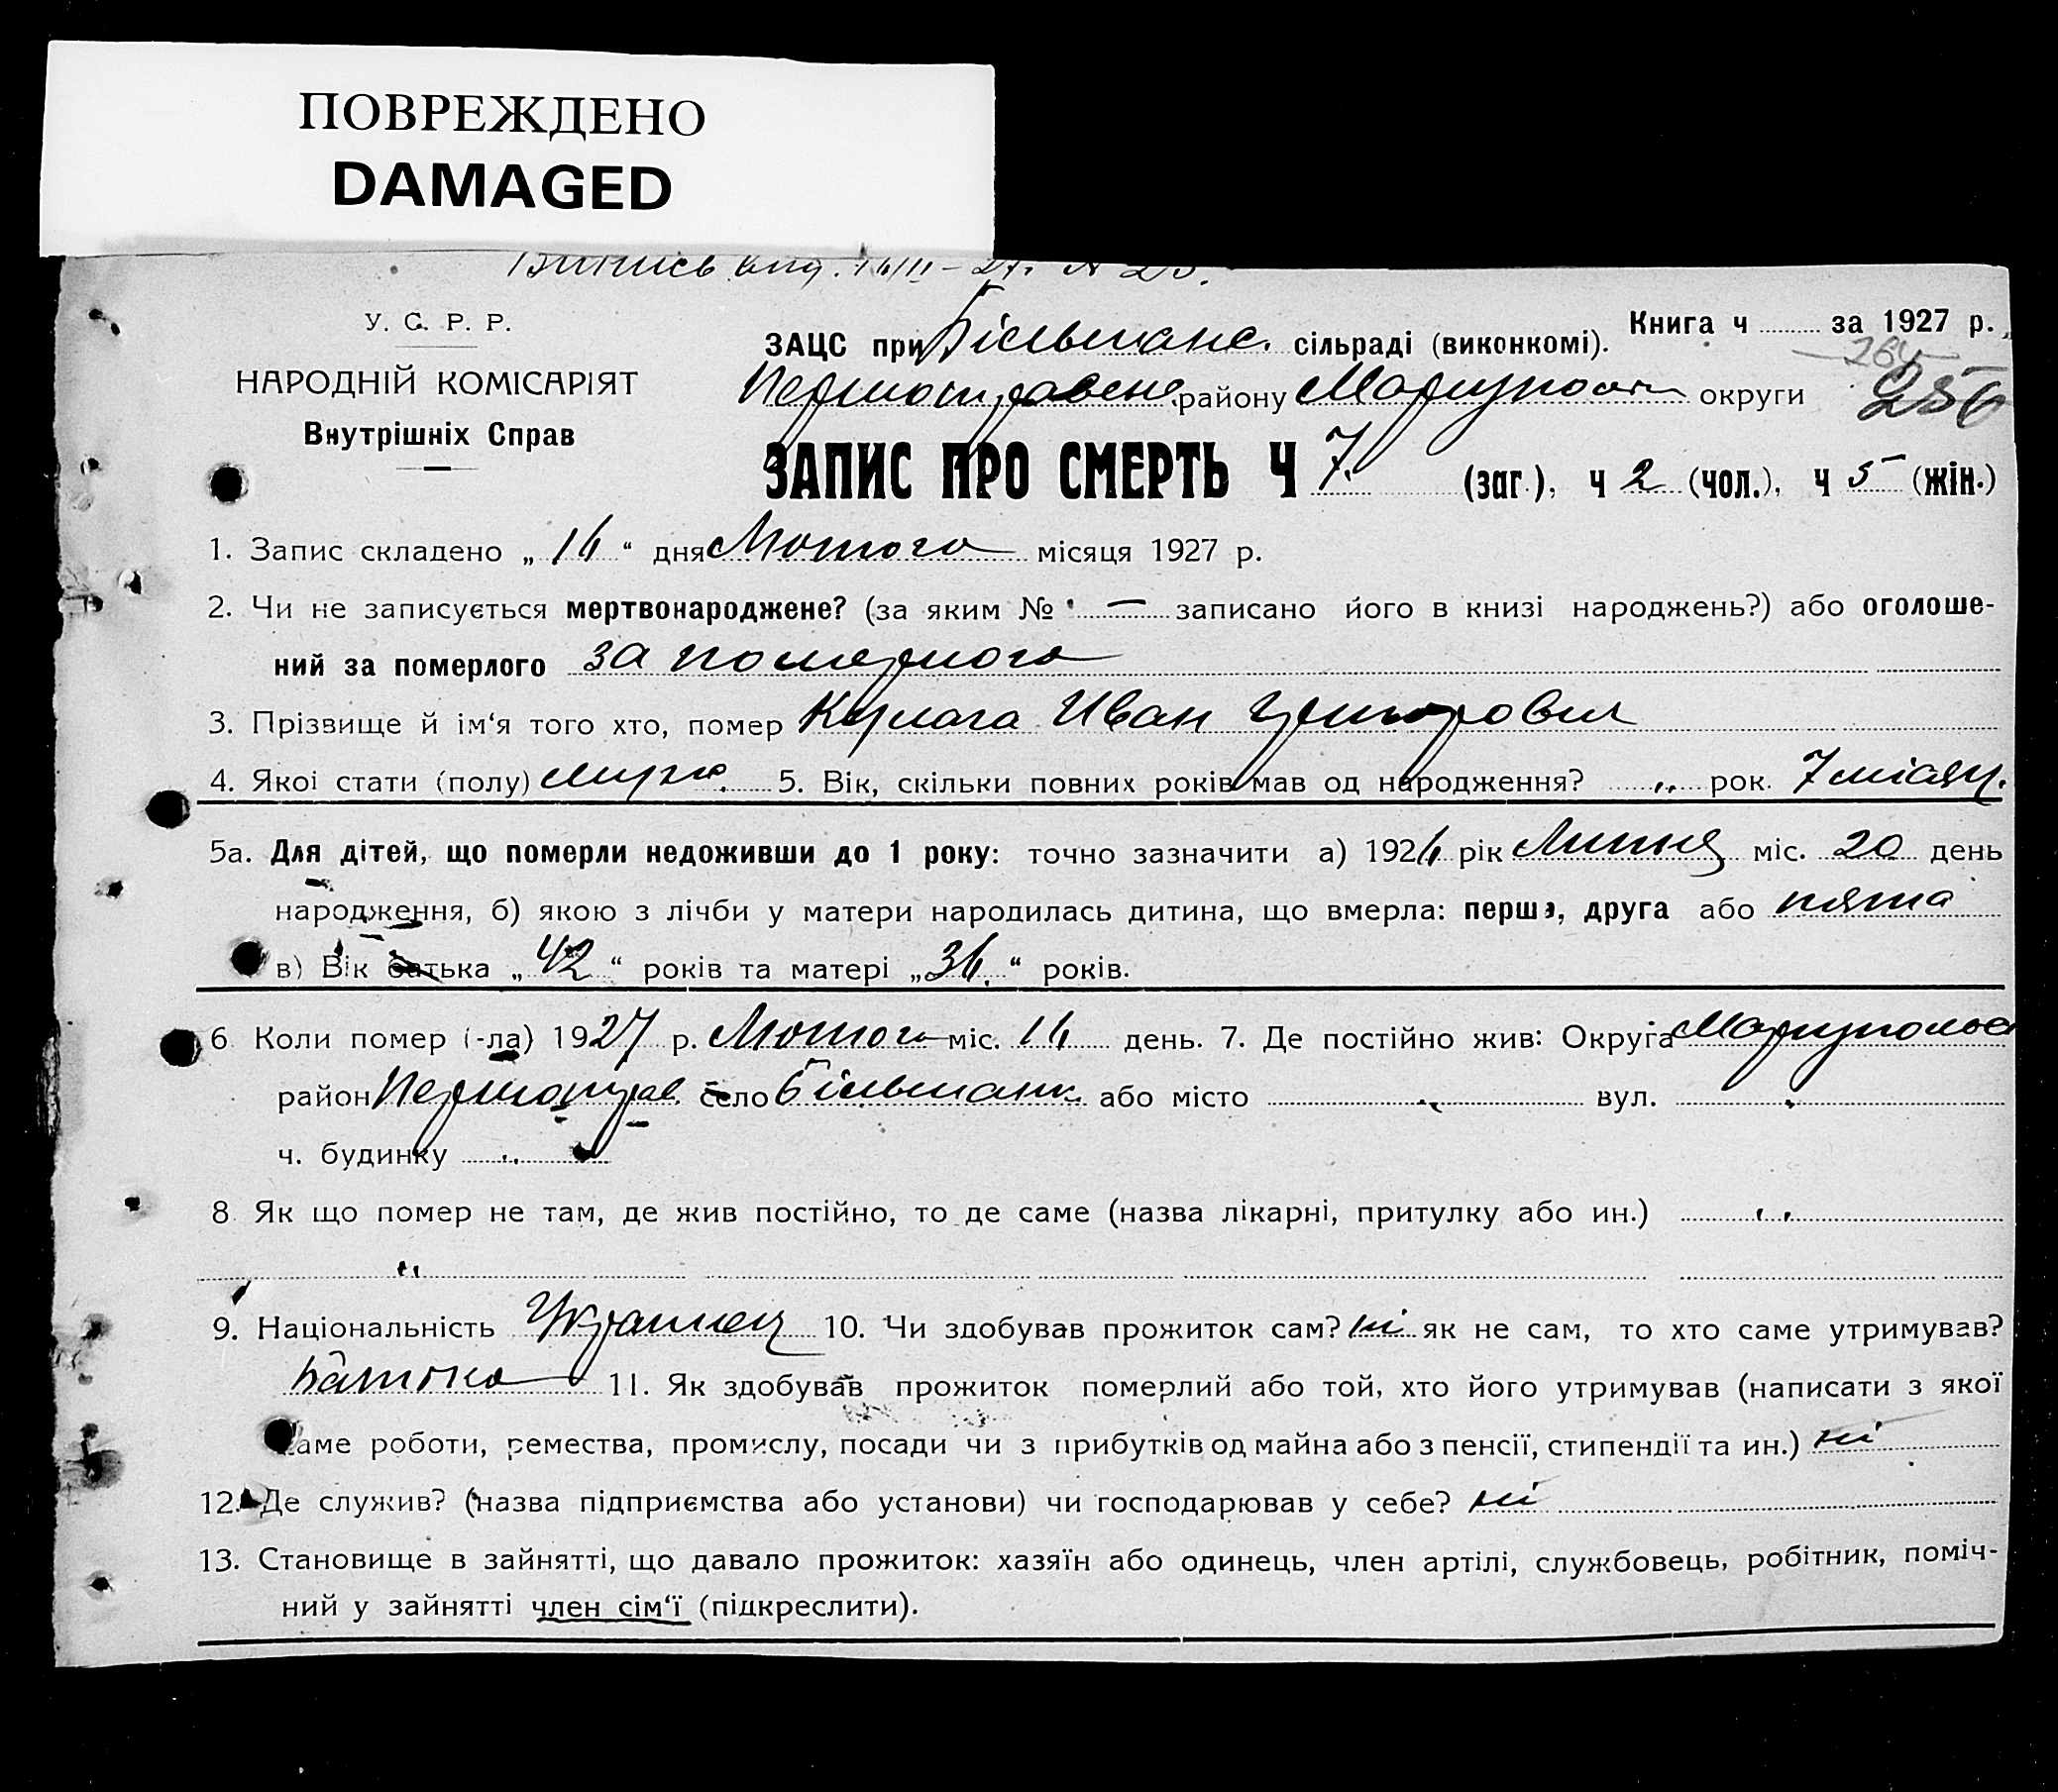 ПОВРЕЖДЕНО
DAMAGED
У. С. Р. Р.
НАРОДНІЙ КОМІСАРІЯТ
Внутрішніх Справ
Книга ч за 1927 р.
ЗАЦС при Більманс. сільраді (виконкомі).
264
Першотравенс. району Маріупольск округи 256
ЗАПИС ПРО СМЕРТЬ Ч 7. (заг.), ч 2 (чол.), ч 5 (жін.)
1. Запис складено „ 16 “ дня Лютого місяця 1927 р.
2. Чи не записується мертвонароджене? (за яким № — записано його в книзі народжень?) або оголоше-
ний за померлого за померлого
3. Прізвище й ім‘я того хто, помер Иван Григорович
4. Якоі стати (полу) мужс. 5. Вік, скільки повних років мав од народження? „ рок. 7 місяц.
5а. Для дітей, що померли недоживши до 1 року: точно зазначити а) 1926 рік Липня міс. 20 день
народження, б) якою з лічби у матери народилась дитина, що вмерла: перша, друга або пята
в) Вік батька „ 42 “ років та матері „ 36. “ років.
6 Коли помер (-ла) 1927 р. Лютого міс. 16 день. 7. Де постійно жив: Округа Маріупольс
район Першотрав. село Більманк. або місто „ вул. „
ч. будинку „
8 Як що помер не там, де жив постійно, то де саме (назва лікарні, притулку або ин.) „
„
9. Національність Украінец 10. Чи здобував прожиток сам? ні як не сам, то хто саме утримував?
батько 11. Як здобував прожиток померлий або той, хто його утримував (написати з якої
саме роботи, ремества, промислу, посади чи з прибутків од майна або з пенсії, стипендії та ин.) ні
12. Де служив? (назва підприємства або установи) чи господарював у себе? ні
13. Становище в зайнятті, що давало прожиток: хазяїн або одинець, член артілі, службовець, робітник, поміч-
ний у зайнятті член сім‘ї (підкреслити).